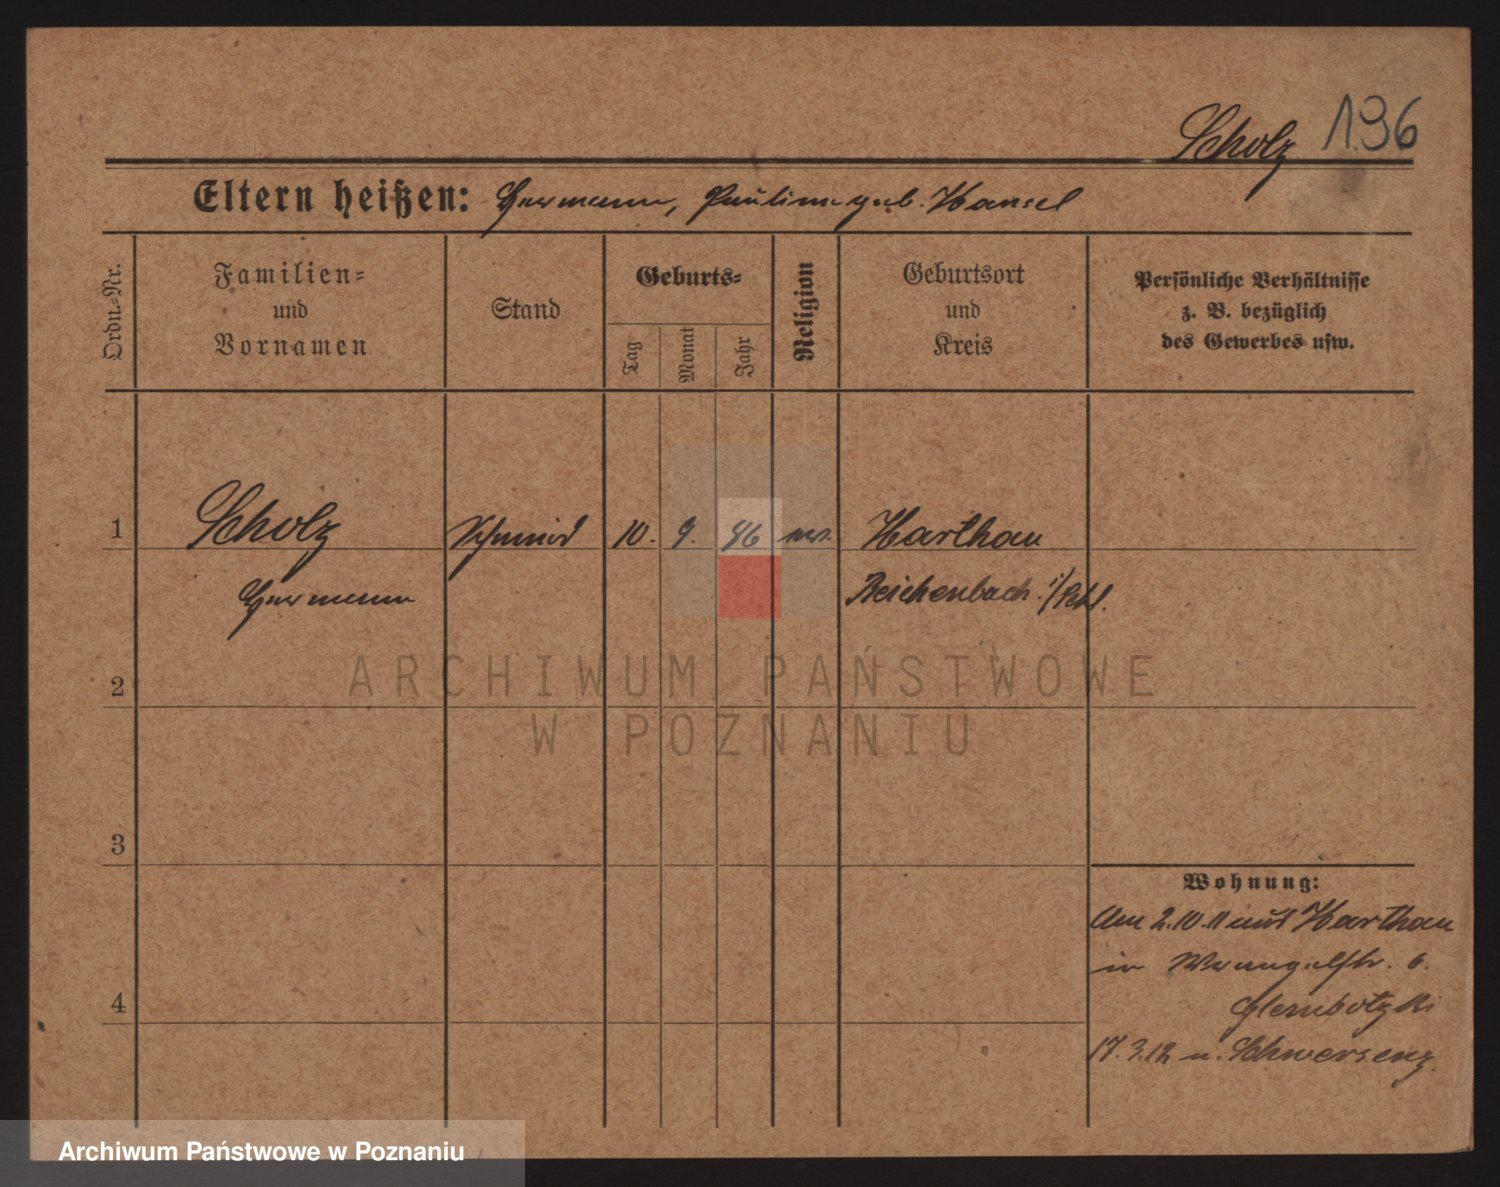 Scholz 196
Eltern heißen: Hermann, Pauline geb. Hansel
Ordn.-Nr.
Familien-
und
Vornamen
Stand
Geburts-
Tag
Monat
Jahr
Religion
Geburtsort
und
Kreis
Persönliche Verhältnisse
z. B. bezüglich
des Gewerbes usw.
1 Scholz Schmied 10. 9. Harthau
Hermann Reichenbach i/Schl.
2
3
4
Wohnung:
Am 2.10.11 aus Harthau
in Wrangelstr. 6.
17.3.12 n. Schwersenz.
ARCHIWUM PAŃSTWOWE
W POZNANIU
Archiwum Państwowe w Poznaniu